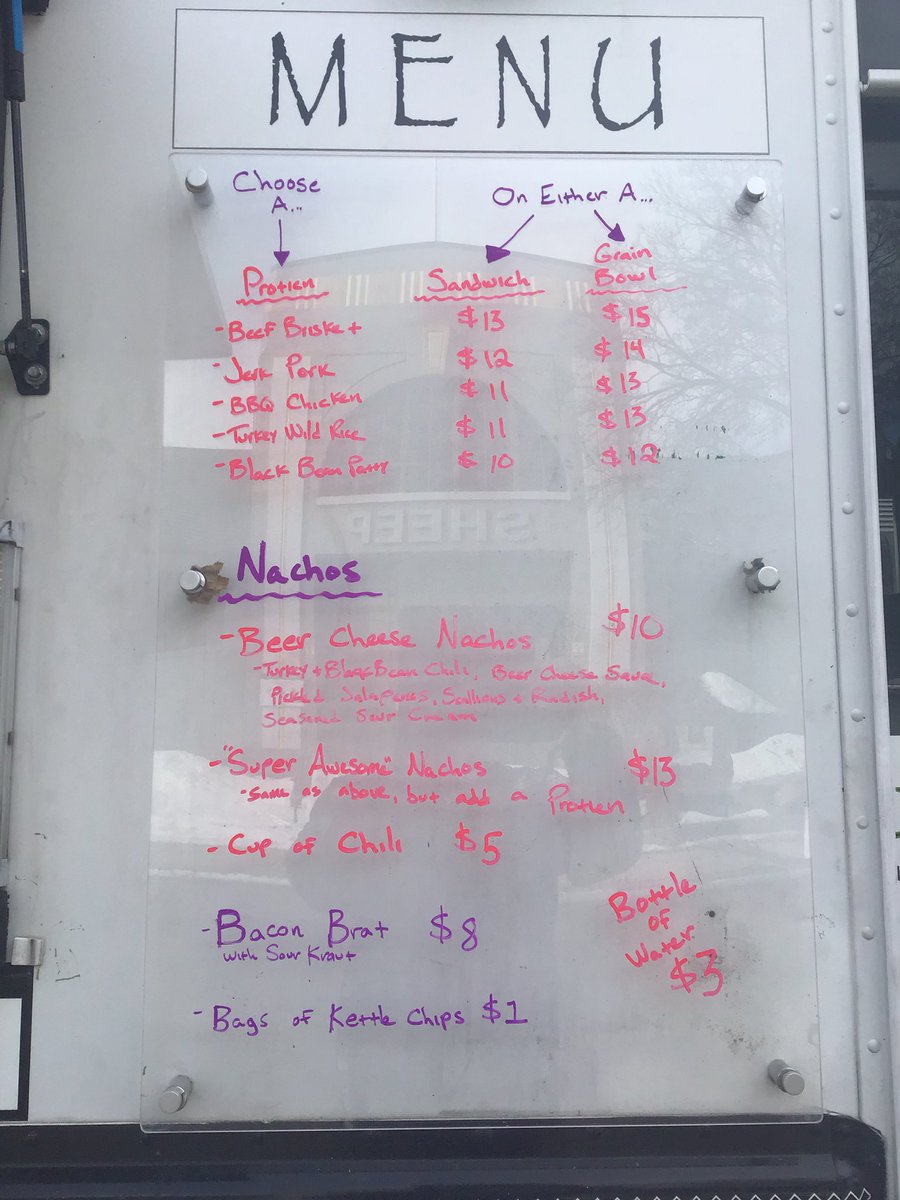 MENU
Choose
A...
On Either A...
Protien
Sandwich
Grain
Bowl
-Beef Brisket
$13
$15
-Jerk Pork
$12
$14
-BBQ Chicken
$11
$13
-Turkey Wild Rice
$11
$13
-Black Bean Patty
$10
$12
SHEEP
Nachos
-Beer Cheese Nachos $10
-Turkey + Black Bean Chili, Beer Cheese Sauce,
Pickled Jalapenos, Scallions + Radish,
Seasoned Sour Cream
-"Super Awesome" Nachos $13
-Same as above, but add a Protien
-Cup of Chili $5
-Bacon Brat $8
with Sour Kraut
Bottle
of
Water
$3
-Bags of Kettle Chips $1